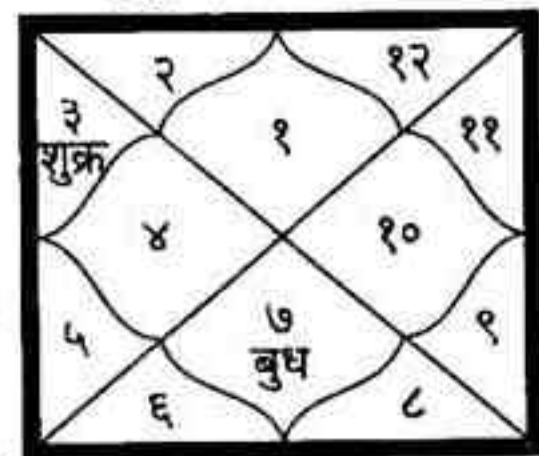 २
१२
३
शुक्र
१
११
४
१०
५
७
बुध
९
६
८